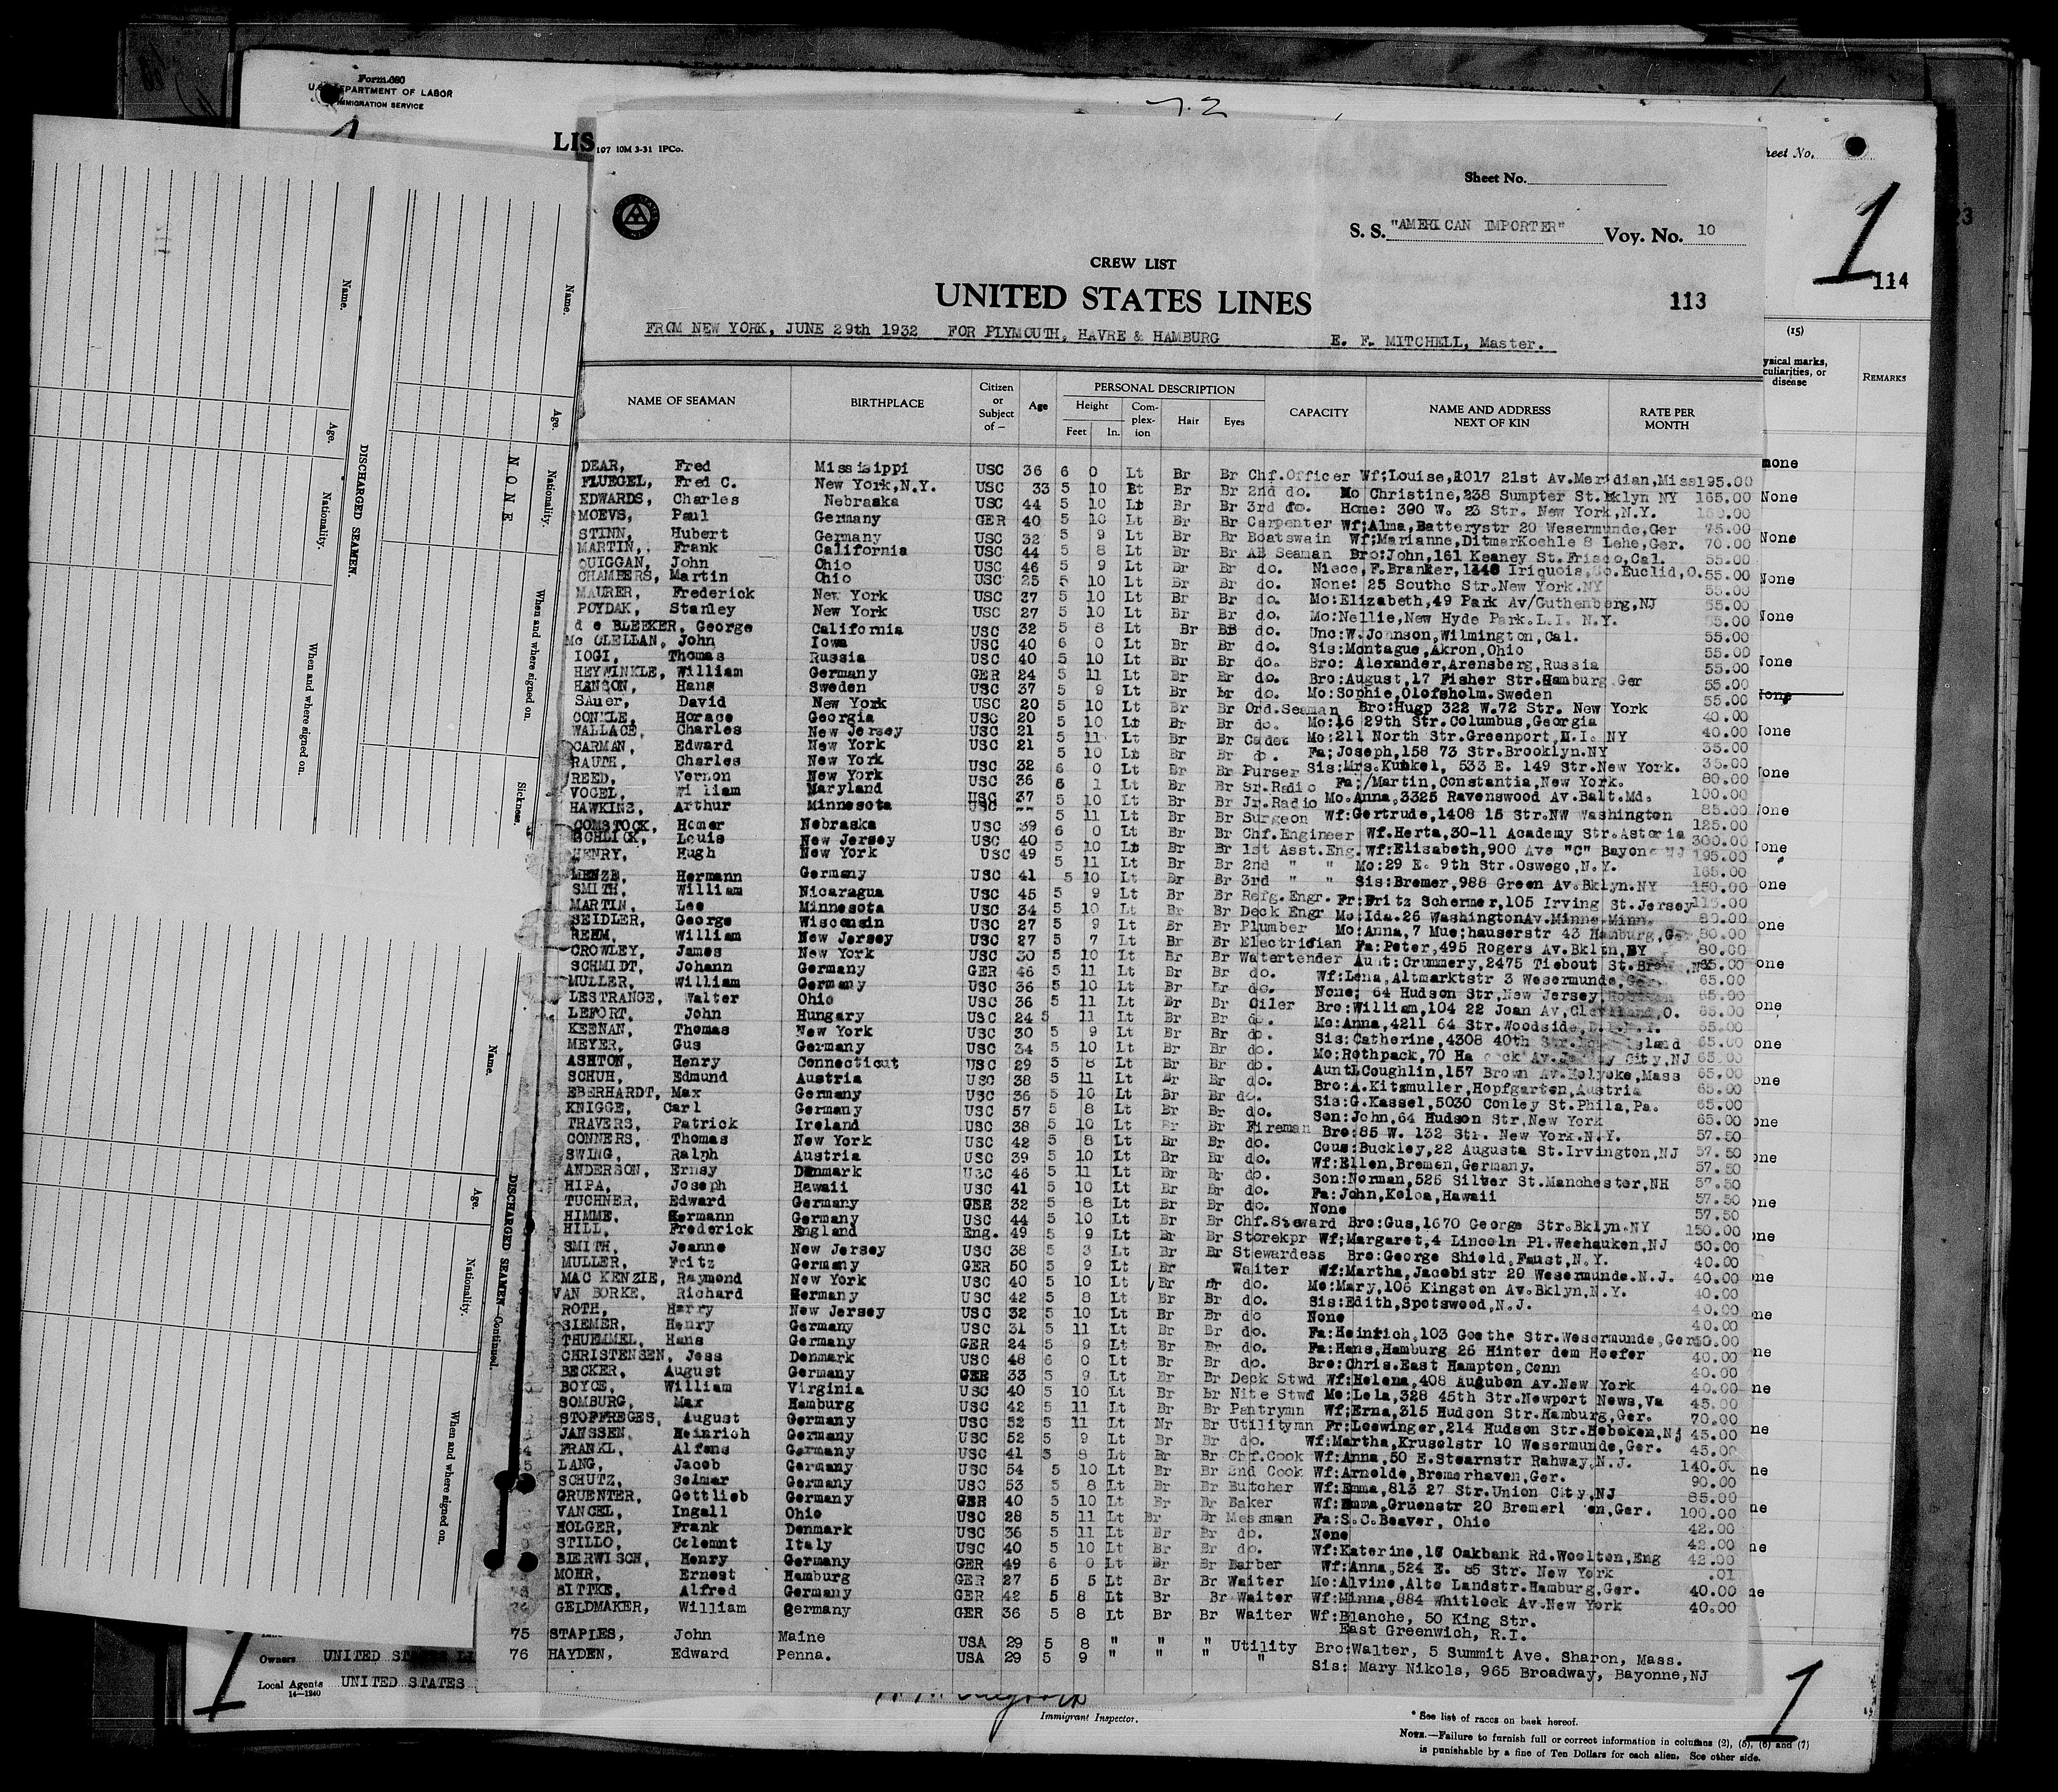 Form 680
U.S. DEPARTMENT OF LABOR
IMMIGRATION SERVICE
LIS
107 10M 3-31 IPCo.
Sheet No.
S. S. "AMERICAN IMPORTER" Voy. No. 10
CREW LIST
UNITED STATES LINES
113
114
FROM NEW YORK, JUNE 29th 1932 FOR PLYMOUTH, HAVRE & HAMBURG E. F. MITCHELL, Master.
NAME OF SEAMAN BIRTHPLACE Citizen or Subject of — Age PERSONAL DESCRIPTION Height Feet In. Complexion Hair Eyes CAPACITY NAME AND ADDRESS NEXT OF KIN RATE PER MONTH
DEAR, Fred Missisippi USC 36 6 0 Lt Br Br Chf.Officer Wf;Louise,1017 21st Av.Meridian,Miss 195.00
FLUEGEL, Fred C. New York,N.Y. USC 33 5 10 Lt Br Br 2nd do. Mo Christine,238 Sumpter St.Bklyn NY 165.00
EDWARDS, Charles Nebraska USC 44 5 10 Lt Br Br 3rd do. Home: 390 W. 23 Str. New York,N.Y.
MOEVS, Paul Germany GER 40 5 10 Lt Br Br Carpenter Wf;Alma,Batterystr 20 Wesermunde,Ger 75.00
STINN, Hubert Germany USC 32 5 9 Lt Br Br Boatswain Wf;Marianne,DitmarKoehle 8 Lehe,Ger. 70.00
MARTIN,. Frank California USC 44 5 8 Lt Br Br AB Seaman Bro:John,161 Keaney St.Frisco,Cal. 55.00
QUIGGAN, John Ohio USC 46 5 9 Lt Br Br do. Niece,F.Branker,1446 Iriquois,So.Euclid,O. 55.00
CHAMBERS, Martin Ohio USC 25 5 10 Lt Br Br do. None: 25 Southc Str.New York.NY 55.00
MAURER, Frederick New York USC 27 5 10 Lt Br Br do. Mo:Elizabeth,49 Park Av/Guthenberg,NJ 55.00
POYDAK, Stanley New York USC 27 5 10 Lt Br Br do. Mo:Nellie,New Hyde Park.L.I. N.Y. 55.00
d e BLEEKER, George California USC 32 5 8 Lt Br Br do. Unc:W.Johnson,Wilmington,Cal. 55.00
Mc CLELLAN, John Iowa USC 40 6 0 Lt Br Br do. Sis:Montague,Akron,Ohio 55.00
IOGI, Thomas Russia USC 40 5 10 Lt Br Br do. Bro: Alexander,Arensberg,Russia 55.00
HEYWINKLE, William Germany GER 24 5 11 Lt Br Br do. Bro:August,17 Fisher Str.Hamburg Ger 55.00
HANSON, Hans Sweden USC 37 5 9 Lt Br Br do. Mo:Sophie,Olofsholm.Sweden 55.00
SAuer, David New York USC 20 5 10 Lt Br Br Ord.Seaman Bro:Hugp 322 W.72 Str. New York 40.00
CONKLE, Horace Georgia USC 20 5 10 Lt Br Br do. Mo:16 29th Str.Columbus,Georgia 40.00
WALLACE, Charles New Jersey USC 21 5 11 Lt Br Br Cadet Mo:211 North Str.Greenport,M.I. NY 35.00
CARMAN, Edward New York USC 21 5 10 Lt Br Br do. Fa;Joseph,158 73 Str.Brooklyn.NY 35.00
RAUTH, Charles New York USC 32 6 0 Lt Br Br Purser Sis:Mrs.Kunkel, 533 E. 149 Str.New York. 80.00
REED, Vernon New York USC 36 6 1 Lt Br Br Sr.Radio Fa;/Martin,Constantia,New York. 100.00
VOGEL, William Maryland USC 37 5 10 Lt Br Br Jr.Radio Mo.Anna,3325 Ravenswood Av.Balt.Md. 85.00
HAWKINS, Arthur Minnesota USC 5 11 Lt Br Br Surgeon Wf:Gertrude,1408 15 Str.NW Washington 125.00
COMSTOCK, Homer Nebraska USC 39 6 0 Lt Br Br Chf.Engineer Wf.Herta,30-11 Academy Str.Astoria 300.00
SCHLICK, Louis New Jersey USC 40 5 10 Lt Br Br 1st Asst.Eng. Wf:Elisabeth,900 Ave "C" Bayonne NJ 195.00
HENRY, Hugh New York USC 49 5 11 Lt Br Br 2nd " " Mo:29 E. 9th Str.Oswego,N.Y. 165.00
MENZE, Hermann Germany USC 41 5 10 Lt Br Br 3rd " " Sis:Bremer,988 Green Av.Bklyn.NY 150.00
SMITH, William Nicaragua USC 45 5 9 Lt Br Br Refg.Engr. Fr:Fritz Schermer,105 Irving St.Jersey
MARTIN, Lee Minnesota USC 34 5 10 Lt Br Br Deck Engr Mo:Ida.26 WashingtonAv.Minne.Minn. 80.00
SEIDLER, George Wisconsin USC 27 5 9 Lt Br Br Plumber Mo:Anna,7 Mue;hauserstr 43 Hamburg,Ger 80.00
REHM, William New Jersey USC 27 5 7 Lt Br Br Electridian Fa:Peter,495 Rogers Av.Bkltn,BY 80.00
CROWLEY, James New York USC 30 5 10 Lt Br Br Watertender Aunt:Crummery,2475 Tiebout St.
SCHMIDT, Johann Germany GER 46 5 11 Lt Br Br do. Wf:Lena,Altmarktstr 3 Wesermunde,Ger. 65.00
MULLER, William Germany USC 36 5 10 Lt Br Br do. None; 64 Hudson Str,New Jersey, 65.00
LESTRANGE, Walter Ohio USC 36 5 11 Lt Br Br Oiler Bro:William,104 22 Joan Av,Cleveland,O. 65.00
LEFORT, John Hungary USC 24 5 11 Lt Br Br do. Mo:Anna,4211 64 Str.Woodside, 65.00
KEENAN, Thomas New York USC 30 5 9 Lt Br Br do. Sis:Catherine,4308 40th 65.00
MEYER, Gus Germany USC 34 5 10 Lt Br Br do. Mo:Rothpack,70 City,NJ 65.00
ASHTON, Henry Connecticut USC 29 5 8 Lt Br Br do. AuntLCoughlin,157 Brown Av.Holyoke,Mass 65.00
SCHUH, Edmund Austria USC 38 5 11 Lt Br Br do. Bro:A.Kitzmuller,Hopfgarten,Austria 65.00
EBERHARDT, Max Germany USC 36 5 10 Lt Br Br do. Sis:G.Kassel,5030 Conley St.Phila,Pa. 65.00
KNIGGE, Carl Germany USC 57 5 8 Lt Br Br do. Son:John,64 Hudson Str,New York 65.00
TRAVERS, Patrick Ireland USC 38 5 10 Lt Br Br Fireman Bro:85 W. 132 Str. New York.N.Y. 57.50
CONNERS, Thomas New York USC 42 5 8 Lt Br Br do. Cous:Buckley,22 Augusta St.Irvington,NJ 57.50
SWING, Ralph Austria USC 39 5 10 Lt Br Br do. Wf:Ellen,Bremen,Germany. 57.50
ANDERSON, Ernsy Denmark USC 46 5 11 Lt Br Br do. Son:Norman,526 Silver St.Manchester,NH 57.50
HIPA, Joseph Hawaii USC 41 5 10 Lt Br Br do. Fa:John,Koloa,Hawaii 57.50
TUCHNER, Edward Germany GER 32 5 8 Lt Br Br do. None 57.50
HIMME, Hermann Germany USC 44 5 10 Lt Br Br Chf.Steward Bro:Gus,1670 George Str.Bklyn.NY 150.00
HILL, Frederick England Eng. 49 5 9 Lt Br Br Storekpr Wf;Margaret,4 Lincoln Pl.Weehauken,NJ 50.00
SMITH, Jeanne New Jersey USC 38 5 3 Lt Br Br Stewardess Bro:George Shield,Faust,N.Y. 40.00
MULLER, Fritz Germany GER 50 5 9 Lt Br Waiter Wf:Martha,Jacobistr 29 Wesermunde.N.J. 40.00
MAC KENZIE, Raymond New York USC 40 5 10 Lt Br Br do. Mo:Mary,106 Kingston Av.Bklyn,N.Y. 40.00
VAN BORKE, Richard Germany USC 42 5 8 Lt Br Br do. Sis:Edith,Spotswood,N.J. 40.00
ROTH, Harry New Jersey USC 32 5 10 Lt Br Br do. None 40.00
SIEMER, Henry Germany USC 31 5 11 Lt Br Br do. Fa:Heinrich,103 Goethe Str.Wesermunde,Ger 40.00
THUEMMEL, Hans Germany GER 24 5 9 Lt Br Br do. Fa:Hans,Hamburg 26 Hinter dem Hoefer 40.00
CHRISTENSEN, Jess Denmark USC 48 6 0 Lt Br Br do. Bro:Chris.East Hampton,Conn 40.00
BECKER, August Germany GER 33 5 9 Lt Br Br Deck Stwd Wf:Helena,408 Augubon Av.New York 40.00
BOYCE, William Virginia USC 40 5 10 Lt Br Br Nite Stwd Mo:Lela,328 45th Str.Newport News,Va 45.00
SOMBURG, Max Hamburg USC 42 5 11 Lt Br Br Pantrymn Wf;Erna,315 Hudson Str.Hamburg,Ger. 70.00
STOFFREGES, August Germany USC 52 5 11 Lt Nr Br Utilitymn Fr:Loewinger,214 Hudson Str.Hoboken,NJ 45.00
JANSSEN, Heinrich Germany USC 52 5 9 Lt Br Br do. Wf:Martha,Kruselstr 10 Wesermunde,Ger. 45.00
FRANKL, Alfons Germany USC 41 5 8 Lt Br Br Chf.Cook Wf:Anna,50 E.Stearnstr Rahway,N.J. 140.00
LANG, Jacob Germany USC 54 5 10 Lt Br Br 2nd Cook Wf:Arnolde,Bremerhaven,Ger. 90.00
SCHUTZ, Selmar Germany USC 53 5 8 Lt Br Br Butcher Wf:Emma,813 27 Str.Union City,NJ 85.00
GRUENTER, Gottlieb Germany GER 40 5 10 Lt Br Br Baker Wf:Emma,Gruenstr 20 Bremerh en,Ger. 100.00
VANCEL, Ingall Ohio USC 28 5 11 Lt Br Br Messman Fa:S.C.Beaver, Ohio 42.00
HOLGER, Frank Denmark USC 36 5 11 Lt Br Br do. None 42.00
STILLO, Celemnt Italy USC 40 5 10 Lt Br Br do. Wf:Katerine,16 Oakbank Rd.Woolton,Eng 42.00
BIERWISCH, Henry Germany GER 49 6 0 Lt Br Br Barber Wf:Anna,524 E. 85 Str. New York .01
MOHR, Ernest Hamburg GER 27 5 5 Lt Br Br Waiter Mo:Alvine,Alte Landstr.Hamburg,Ger. 40.00
BITTKE, Alfred Germany GER 42 5 8 Lt Br Br Waiter Wf:Minna,884 Whitlock Av.New York 40.00
GELDMAKER, William germany GER 36 5 8 Lt Br Br Waiter Wf:Blanche, 50 King Str.
East Greenwich, R.I.
75 STAPLES, John Maine USA 29 5 8 " " " Utility Bro:Walter, 5 Summit Ave. Sharon, Mass.
76 HAYDEN, Edward Penna. USA 29 5 9 " " " " Sis: Mary Nikols, 965 Broadway, Bayonne,NJ
Owners UNITED STATES LI
Local Agents UNITED STATES
14—1240
Immigrant Inspector.
* See list of races on back hereof.
NOTE.—Failure to furnish full or correct information in columns (2), (5), (6) and (7)
is punishable by a fine of Ten Dollars for each alien. See other side.
heet No.
1
(15)
ysical marks,
culiarities, or
disease
REMARKS
None
1
1
DISCHARGED SEAMEN.
Name. Age. Nationality. When and where signed on. Sickness.
NONE
Name. Age. Nationality. When and where signed on.
DISCHARGED SEAMEN—Continued.
Name. Age. Nationality. When and where signed on.